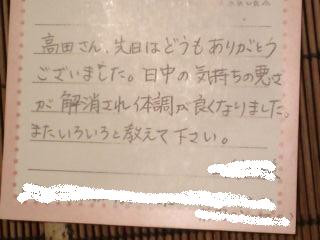 高田さん、先日はどうもありがとう
ございました。日中の気持ちの悪さ
が解消され体調が良くなりました。
またいろいろと教えて下さい。